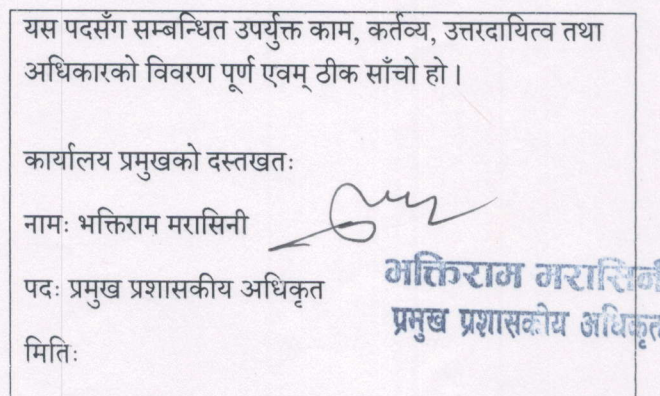 यस पदसँग सम्बन्धित उपर्युक्त काम, कर्तव्य, उत्तरदायित्व तथा
अधिकारको विवरण पूर्ण एवम् ठीक साँचो हो ।
कार्यालय प्रमुखको दस्तखतः
नामः भक्तिराम मरासिनी
पदः प्रमुख प्रशासकीय अधिकृत
भक्तिराम मरासिनी
प्रमुख प्रशासकीय अधिकृत
मितिः